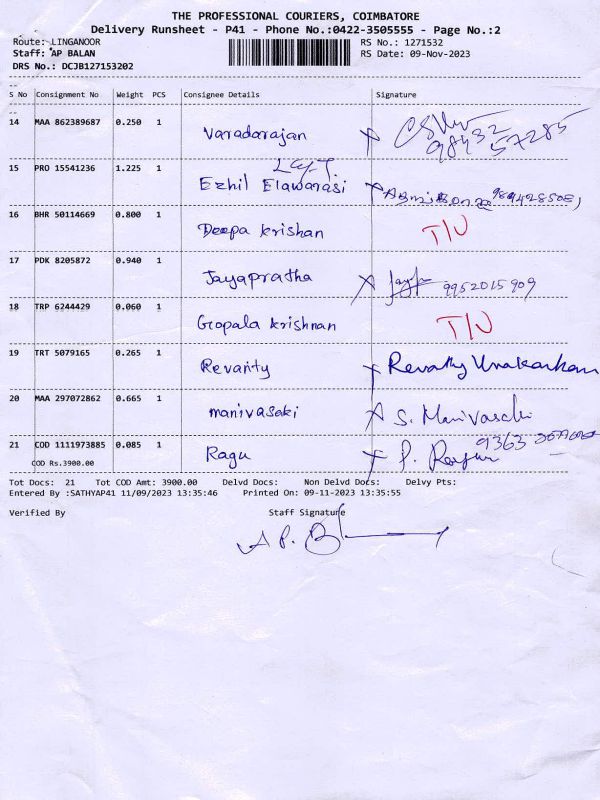 THE PROFESSIONAL COURIERS, COIMBATORE
Delivery Runsheet - P41 - Phone No.:0422-3505555 - Page No.:2
Route: LINGANOOR RS No.: 1271532
Staff: AP BALAN RS Date: 09-Nov-2023
DRS No.: DCJB127153202
S No Consignment No Weight PCS Consignee Details Signature
14 MAA 862389687 0.250 1 Varadarajan 98432 57285
15 PRO 15541236 1.225 1 Ezhil Elawarasi
16 BHR 50114669 0.800 1 Deepa Krishan T/U
17 PDK 8205872 0.940 1 Jayapratha 9952015909
18 TRP 6244429 0.060 1 Gopala Krishnan T/U
19 TRT 5079165 0.265 1 Revanty Revathy
20 MAA 297072862 0.665 1 manivasaki S. Manivasaki
21 COD 1111973885 0.085 1 Ragu 9363
COD Rs.3900.00
Tot Docs: 21 Tot COD Amt: 3900.00 Delvd Docs: Non Delvd Docs: Delvy Pts:
Entered By :SATHYAP41 11/09/2023 13:35:46 Printed On: 09-11-2023 13:35:55
Verified By Staff Signature
A P. B